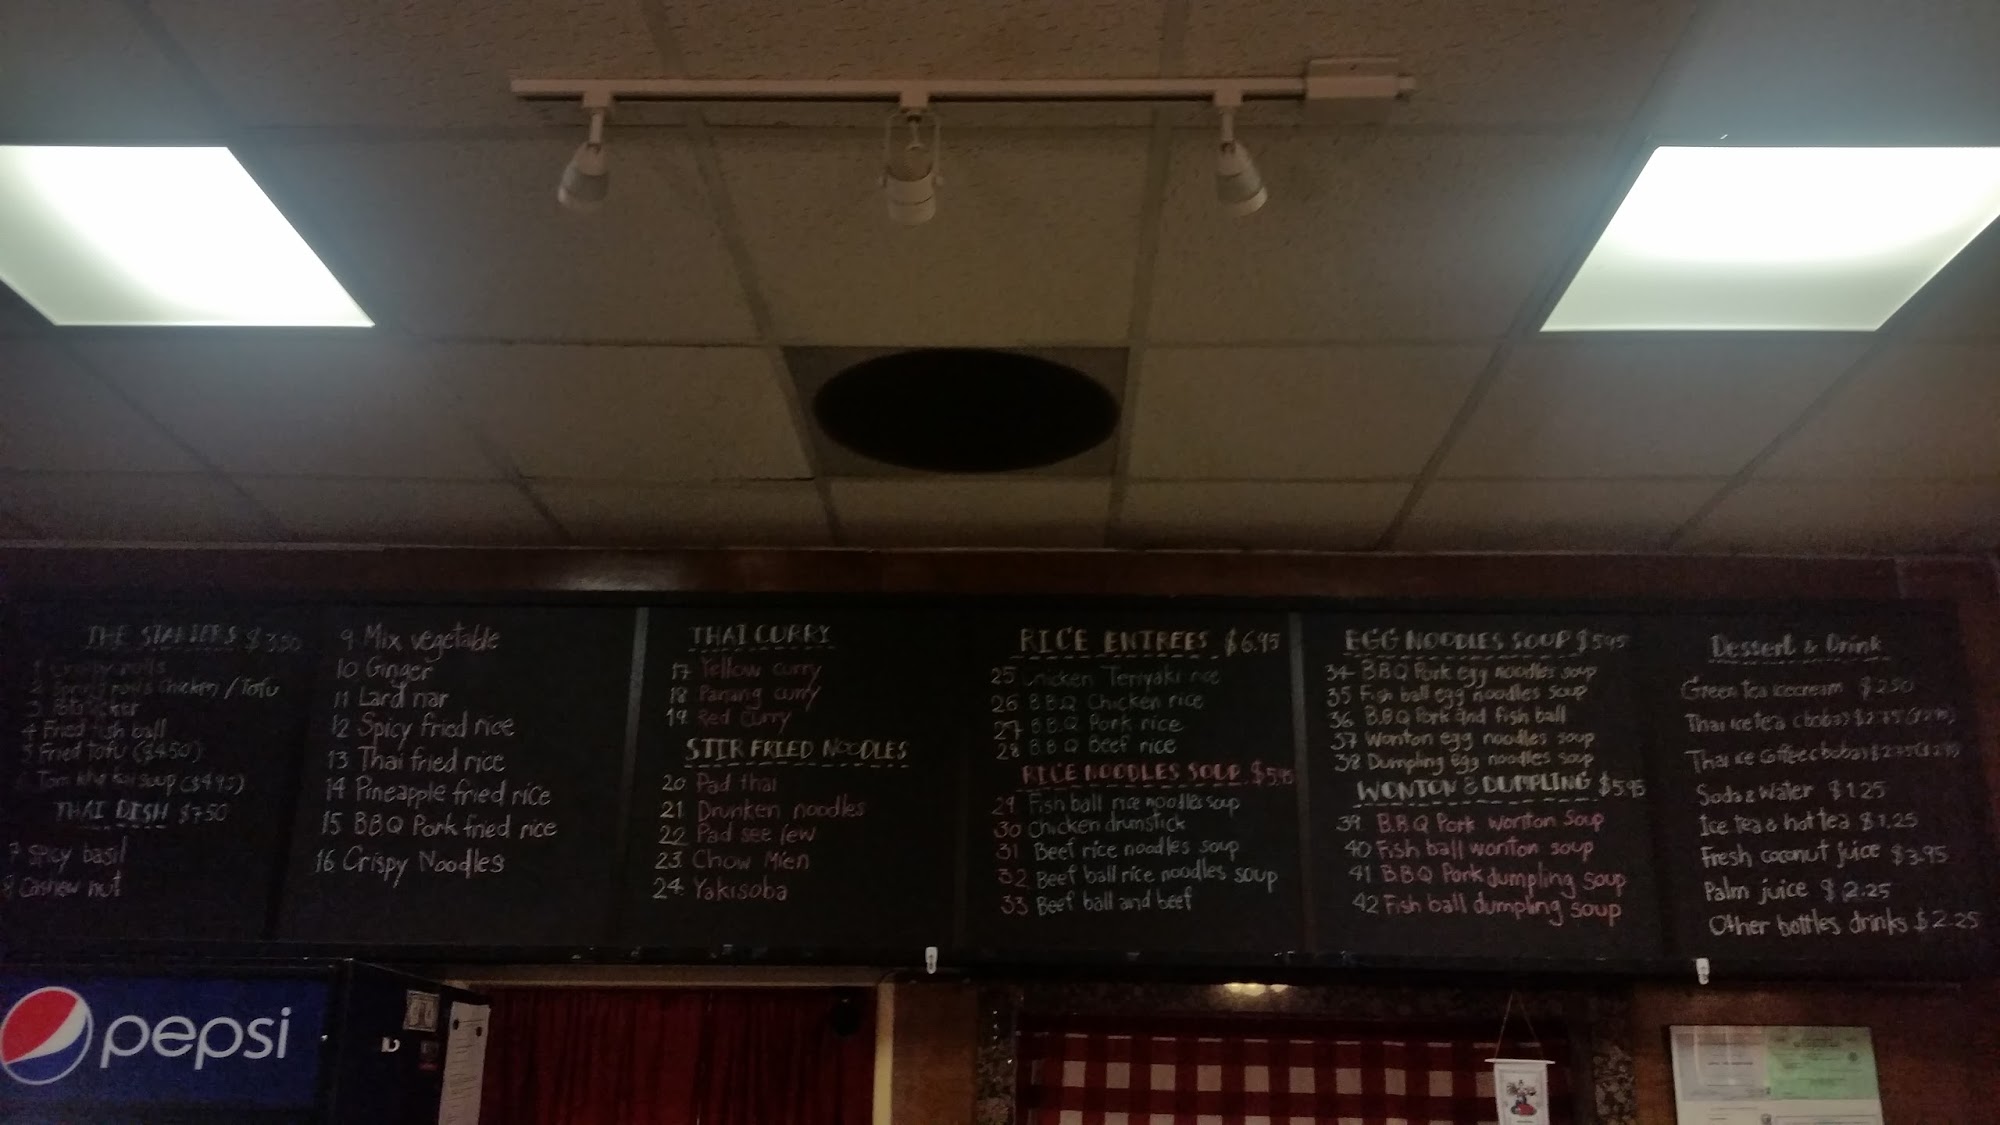 THE STARTERS $3.50
1 Crispy rolls
2 Spring rolls Chicken / Tofu
3 Potsticker
4 Fried fish ball
5 Fried tofu ($4.50)
6 Tom kha kai soup ($4.95)
THAI DISH $7.50
7 Spicy basil
8 Cashew nut
9 Mix vegetable
10 Ginger
11 Lard nar
12 Spicy fried rice
13 Thai fried rice
14 Pineapple fried rice
15 BBQ Pork fried rice
16 Crispy Noodles
THAI CURRY
17 Yellow curry
18 Panang curry
19 Red curry
STIR FRIED NOODLES
20 Pad thai
21 Drunken noodles
22 Pad see few
23 Chow Mien
24 Yakisoba
RICE ENTREES $6.95
25 Chicken Teriyaki rice
26 B.B.Q Chicken rice
27 B.B.Q Pork rice
28 B.B.Q Beef rice
RICE NOODLES SOUP $5.95
29 Fish ball rice noodles soup
30 Chicken drumstick
31 Beef rice noodles soup
32 Beef ball rice noodles soup
33 Beef ball and beef
EGG NOODLES SOUP $5.95
34 B.B.Q Pork egg noodles soup
35 Fish ball egg noodles soup
36 B.B.Q Pork and fish ball
37 Wonton egg noodles soup
38 Dumpling egg noodles soup
WONTON & DUMPLING $5.95
39 B.B.Q Pork wonton soup
40 Fish ball wonton soup
41 B.B.Q Pork dumpling soup
42 Fish ball dumpling soup
Dessert & Drink
Green tea icecream $2.50
Thai ice tea (boba) $2.75
Thai ice coffee (boba) $2.75
Soda & Water $1.25
Ice tea & hot tea $1.25
Fresh coconut juice $3.95
Palm juice $2.25
Other bottles drinks $2.25
pepsi